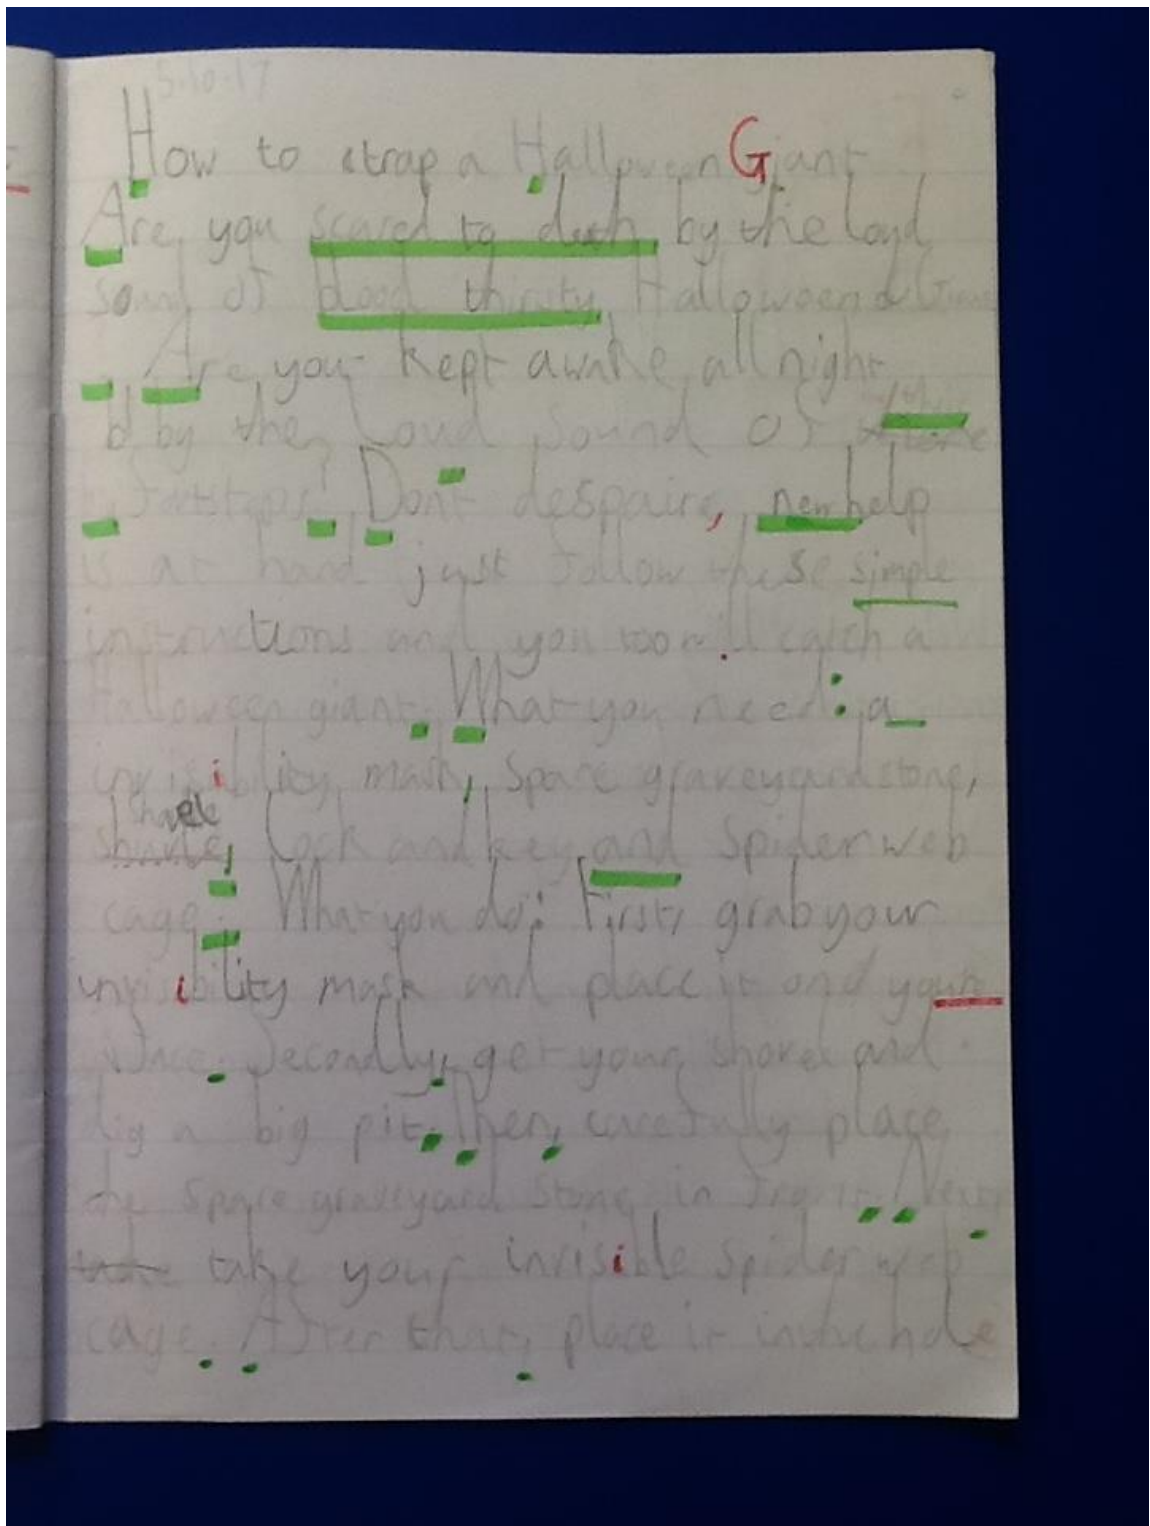 5.10.17
How to trap a Halloween Giant
Are you scared to deth by the loud
sound of blood thirsty Halloween
Are you kept awake all night
by the loud sound of
footsteps! Dont despair, new help
is at hand just follow these simple
instructions and you too will catch a
Halloween giant. What you need: a
invisibility mask, spare graveyard stone,
shovel
lock and key and spider web
cage. What you do: First, grab your
invisibility mask and place it and your
face. Secondly, get your shovel and
dig a big pit. Then, carefully place
the spare graveyard stone in front. Next,
take your invisible spider web
cage. After that, place it in the hole